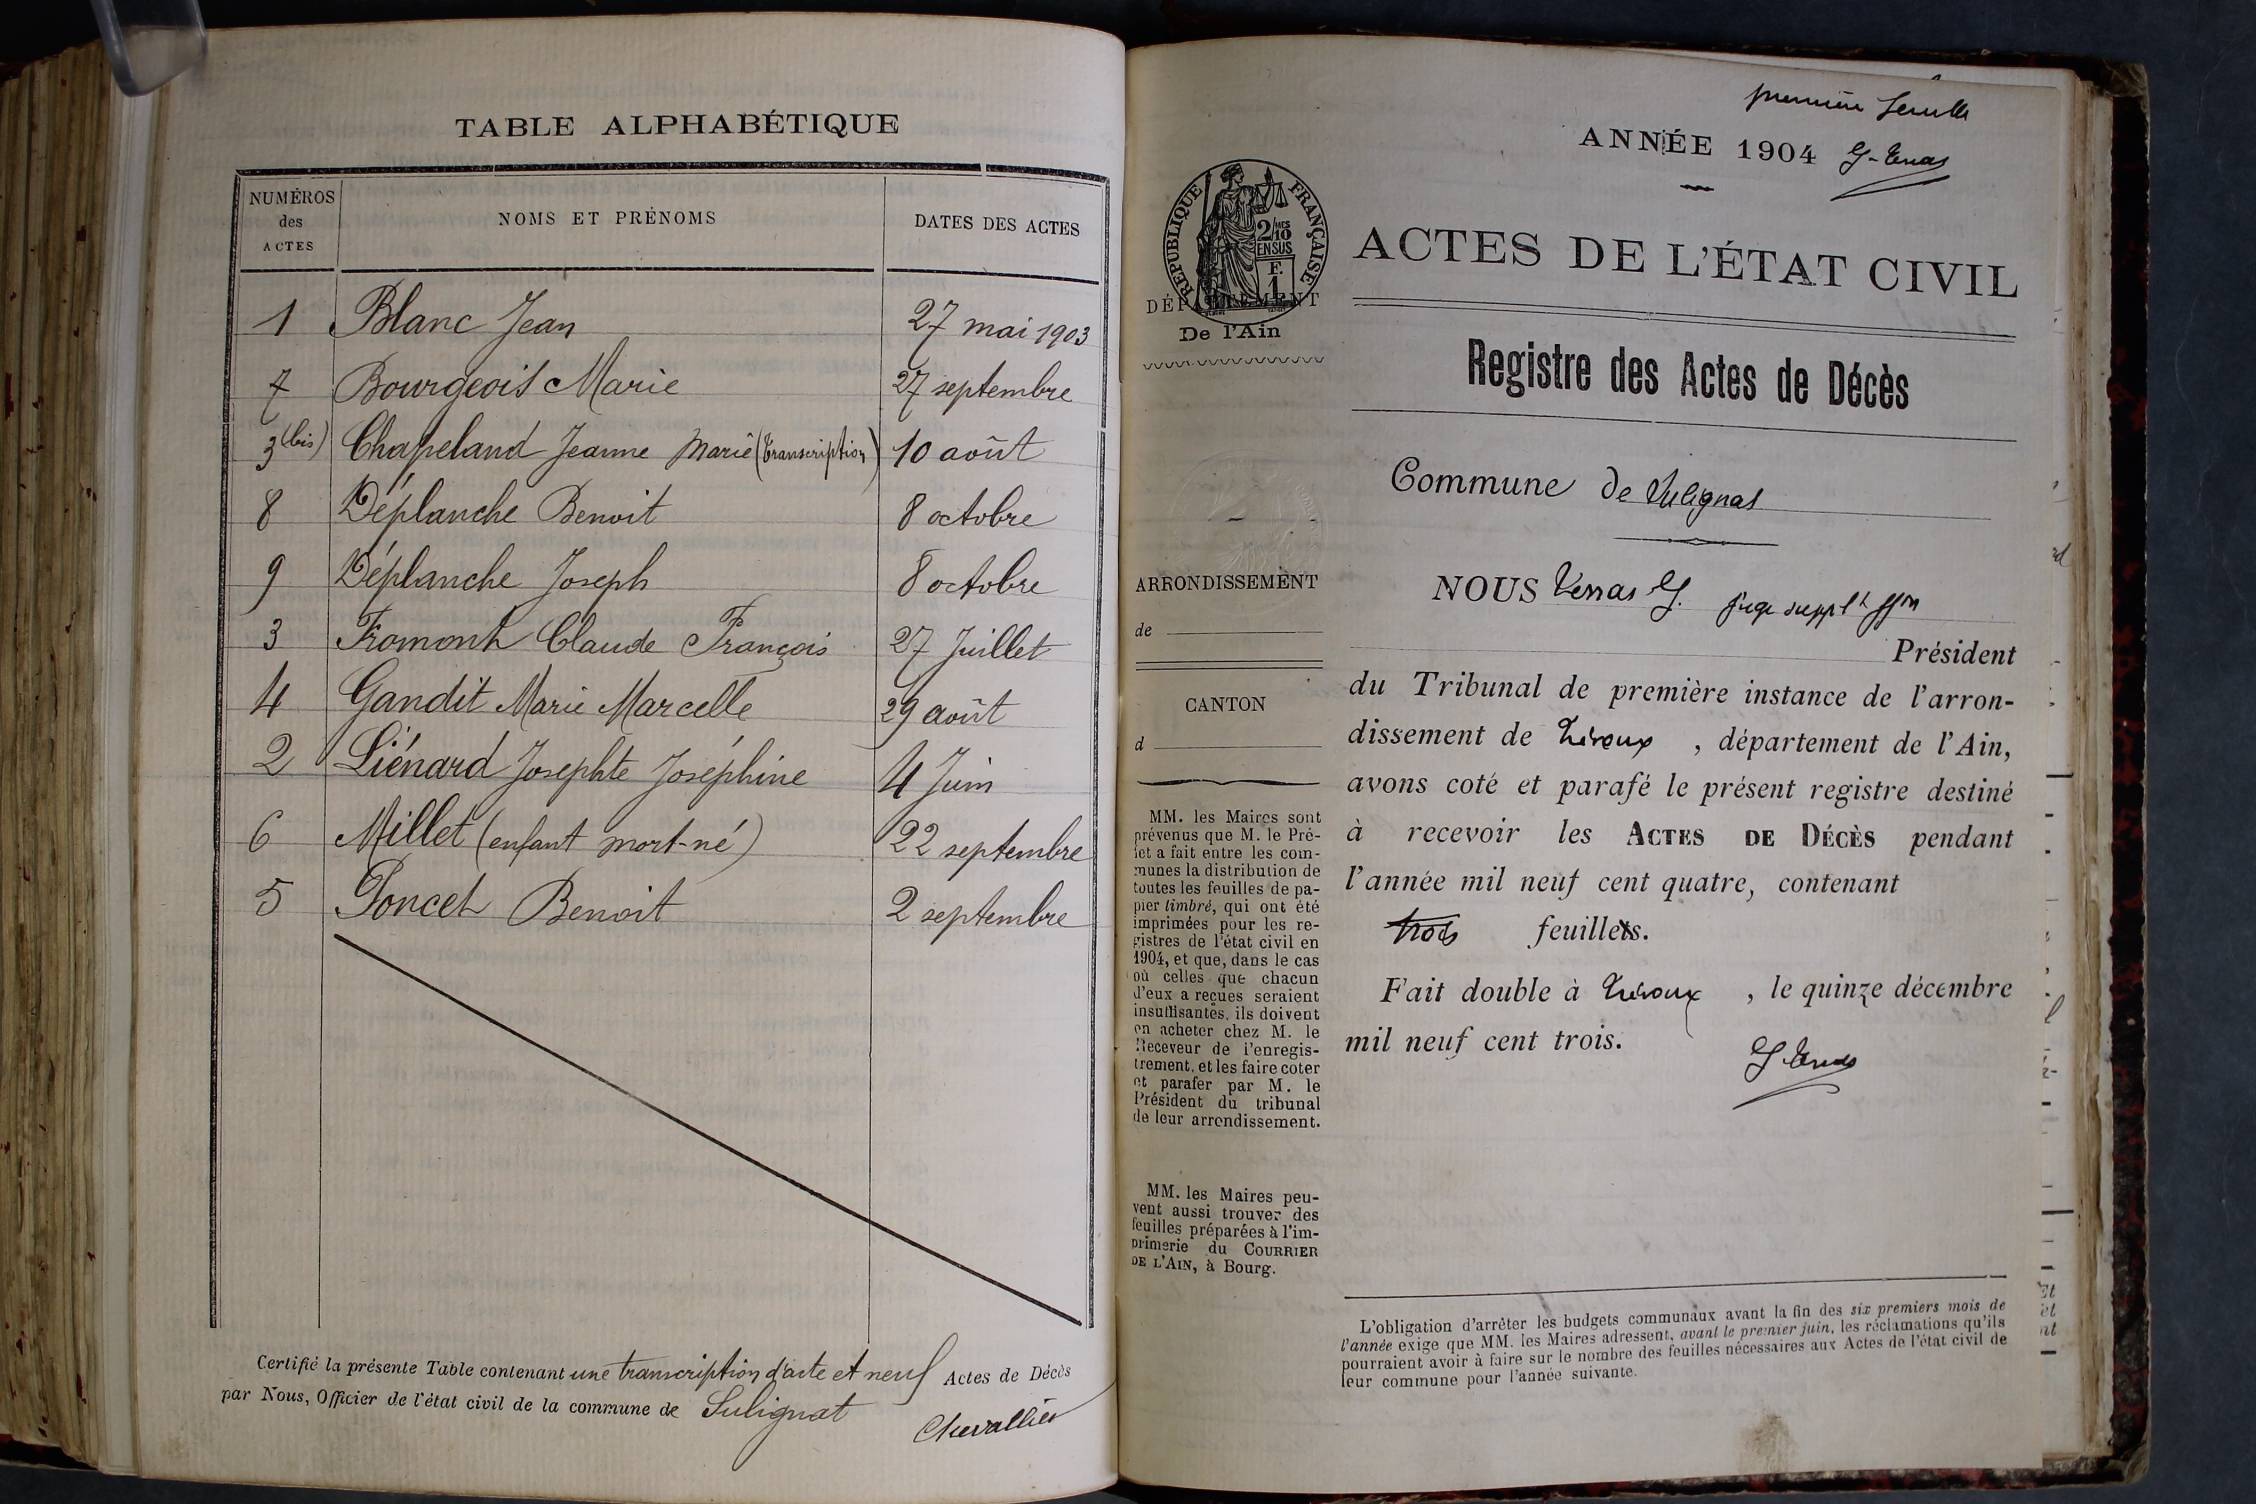 TABLE ALPHABÉTIQUE
NUMÉROS des ACTES NOMS ET PRÉNOMS DATES DES ACTES
1 Blanc Jean 27 mai 1903
7 Bourgeois Marie 27 septembre
3 (bis) Chapeland Jeanne Marie (transcription) 10 août
8 Déplanche Benoit 8 octobre
9 Déplanche Joseph 8 octobre
3 Fromont Claude François 27 Juillet
4 Gandit Marie Marcelle 29 août
2 Liénard Josephte Joséphine 4 Juin
6 Millet (enfant mort-né) 22 septembre
5 Poncet Benoit 2 septembre
Certifié la présente Table contenant une transcription d'acte et neuf Actes de Décès
par Nous, Officier de l'état civil de la commune de Sulignat
Chevallier
première feuille
ANNÉE 1904
RÉPUBLIQUE FRANÇAISE
2/10 MES
EN SUS
F. 1
DÉPARTEMENT
De l'Ain
ARRONDISSEMENT
de
CANTON
d
MM. les Maires sont
prévenus que M. le Pré-
fet a fait entre les com-
munes la distribution de
toutes les feuilles de pa-
pier timbré, qui ont été
imprimées pour les re-
gistres de l'état civil en
1904, et que, dans le cas
où celles que chacun
d'eux a reçues seraient
insuffisantes, ils doivent
en acheter chez M. le
Receveur de l'enregis-
trement, et les faire coter
et parafer par M. le
Président du tribunal
de leur arrondissement.
MM. les Maires peu-
vent aussi trouver des
feuilles préparées à l'im-
primerie du COURRIER
DE L'AIN, à Bourg.
ACTES DE L'ÉTAT CIVIL
Registre des Actes de Décès
Commune de Sulignat
NOUS juge suppl<sup>t</sup>
Président
du Tribunal de première instance de l'arron-
dissement de Trévoux, département de l'Ain,
avons coté et parafé le présent registre destiné
à recevoir les ACTES DE DÉCÈS pendant
l'année mil neuf cent quatre, contenant
trois feuillets.
Fait double à Trévoux, le quinze décembre
mil neuf cent trois.
L'obligation d'arrêter les budgets communaux avant la fin des six premiers mois de
l'année exige que MM. les Maires adressent, avant le premier juin, les réclamations qu'ils
pourraient avoir à faire sur le nombre des feuilles nécessaires aux Actes de l'état civil de
leur commune pour l'année suivante.